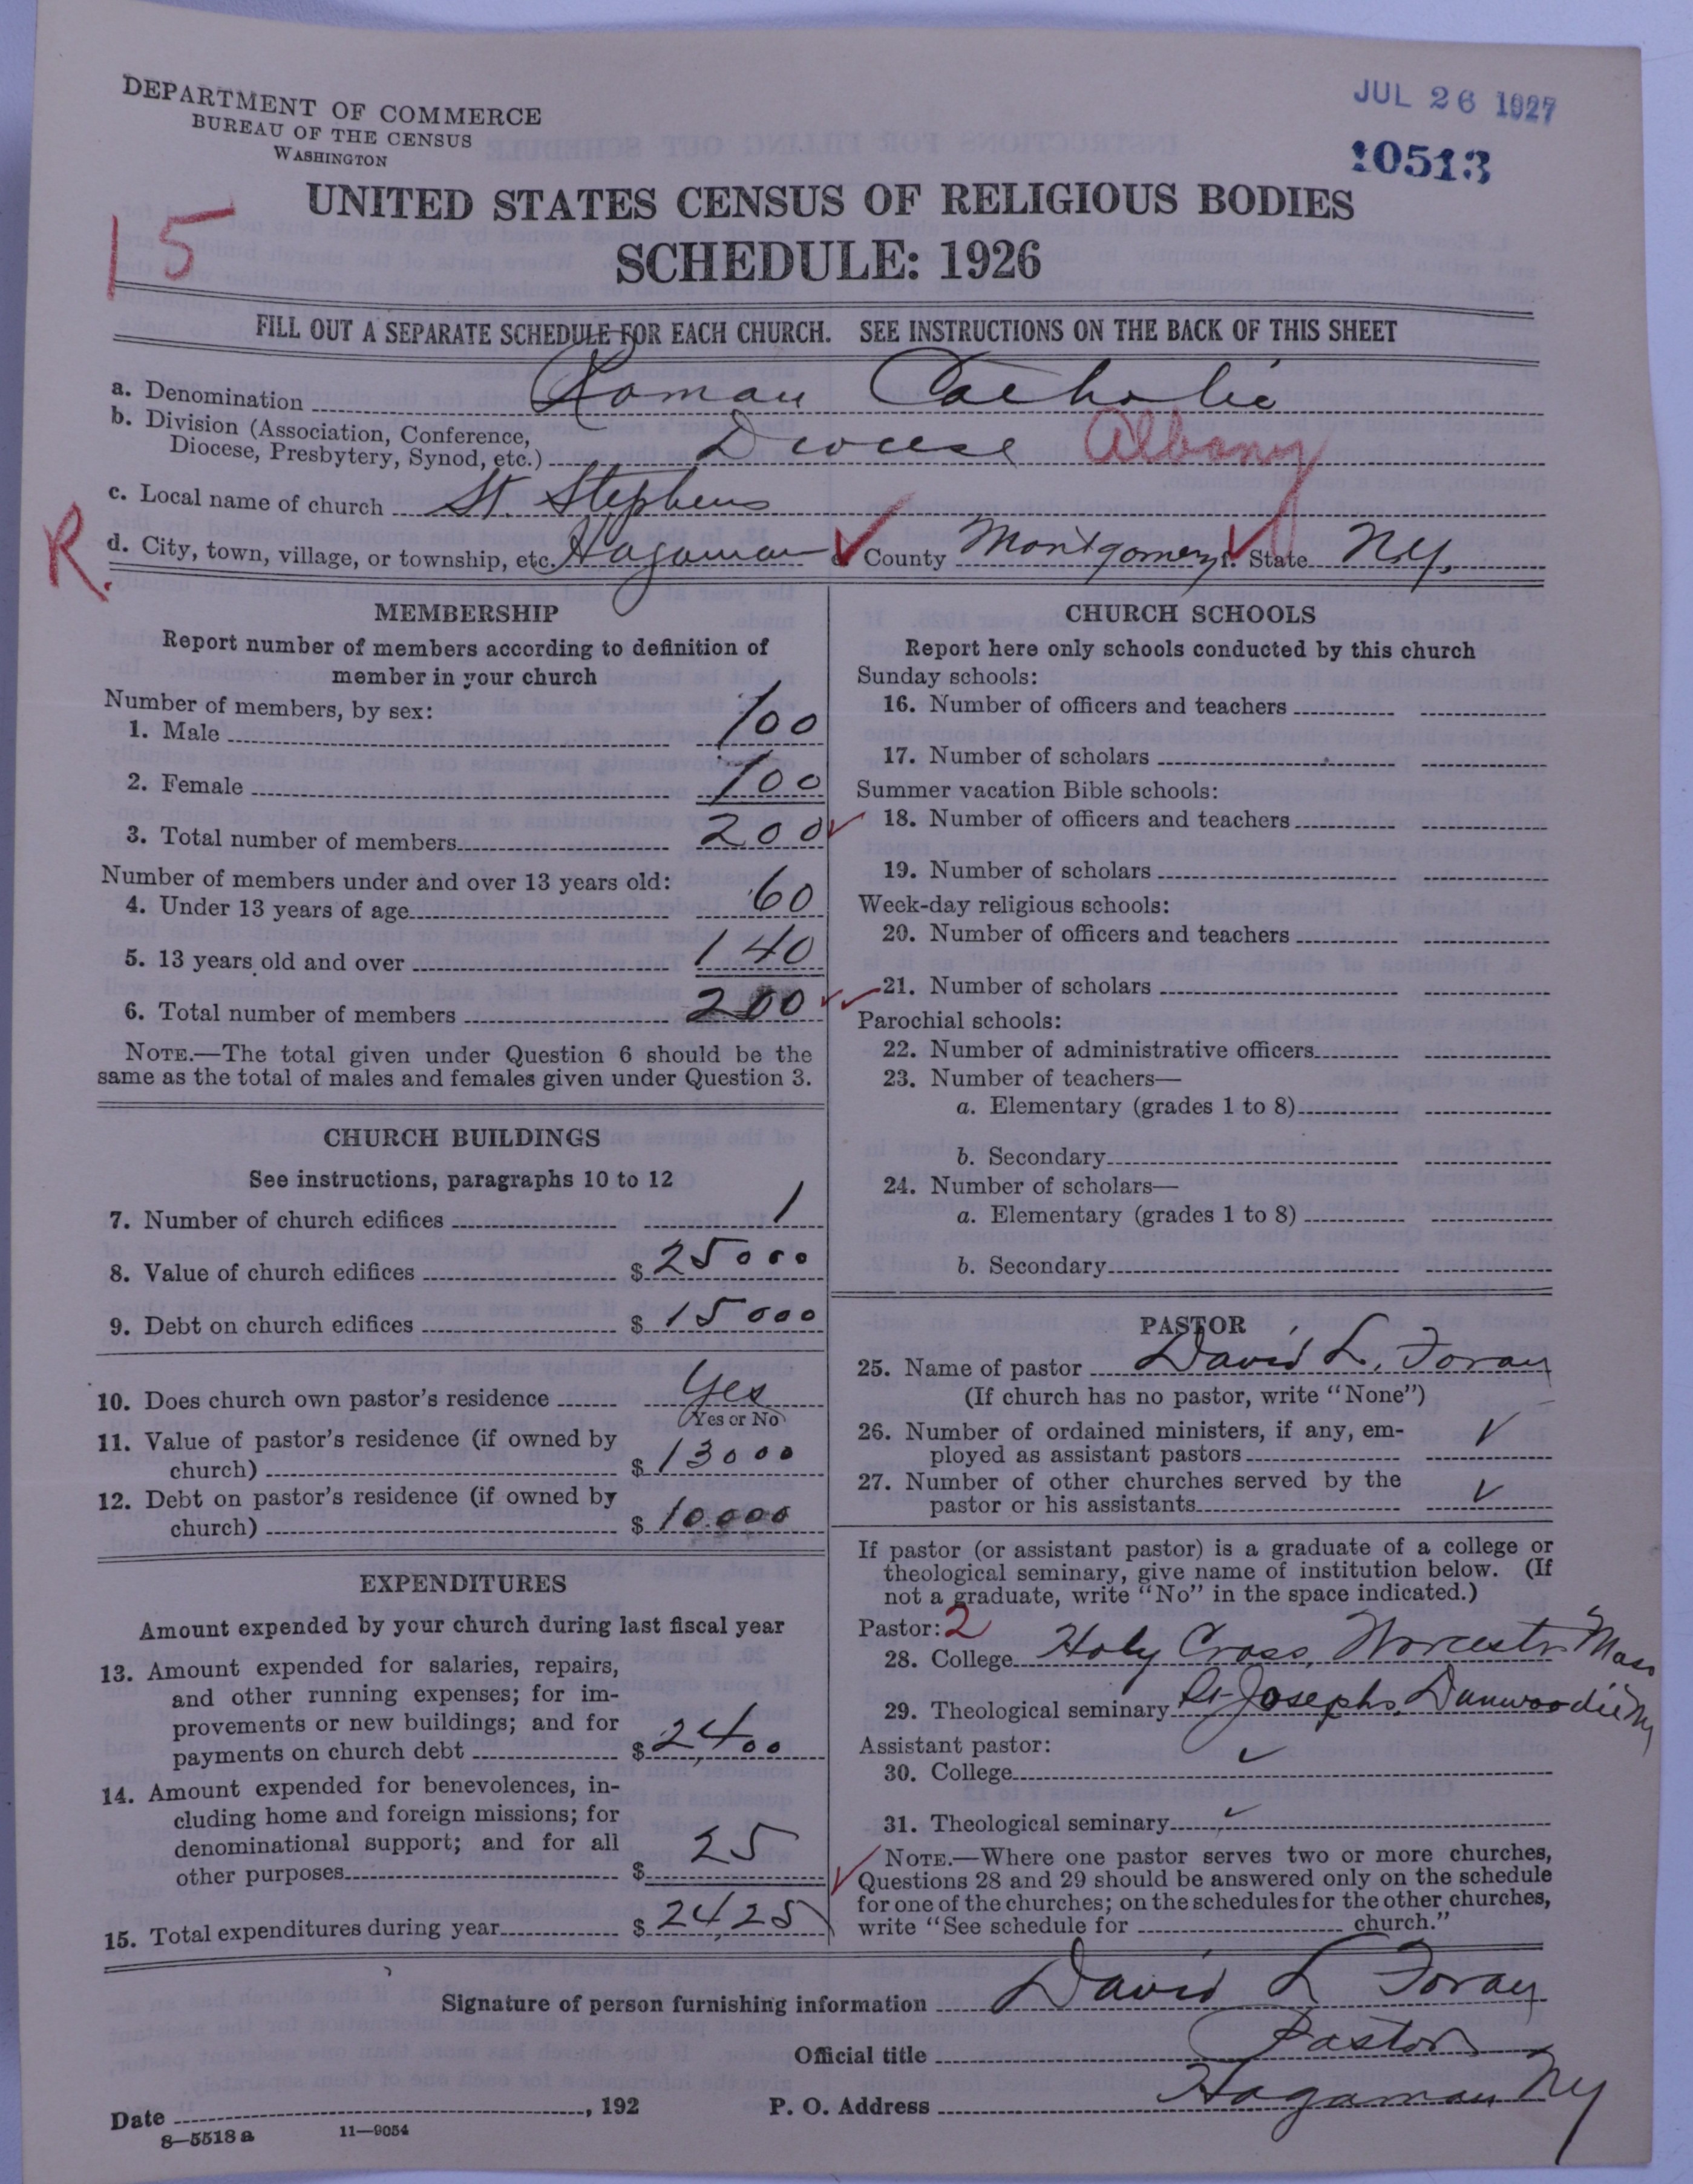 DEPARTMENT OF COMMERCE
BUREAU OF THE CENSUS
WASHINGTON
JUL 26 1927
10513
UNITED STATES CENSUS OF RELIGIOUS BODIES
SCHEDULE: 1926
15
FILL OUT A SEPARATE SCHEDULE FOR EACH CHURCH. SEE INSTRUCTIONS ON THE BACK OF THIS SHEET
a. Denomination Roman Catholic
b. Division (Association, Conference,
Diocese, Presbytery, Synod, etc.) Diocese Albany
c. Local name of church St. Stephens
R.
d. City, town, village, or township, etc. Hagaman County Montgomery f. State N.Y.
MEMBERSHIP
Report number of members according to definition of
member in your church
Number of members, by sex:
1. Male 100
2. Female 100
3. Total number of members 200
Number of members under and over 13 years old:
4. Under 13 years of age 60
5. 13 years old and over 140
6. Total number of members 200
NOTE.—The total given under Question 6 should be the
same as the total of males and females given under Question 3.
CHURCH BUILDINGS
See instructions, paragraphs 10 to 12
7. Number of church edifices 1
8. Value of church edifices $ 25000
9. Debt on church edifices $ 15000
10. Does church own pastor's residence Yes
Yes or No
11. Value of pastor's residence (if owned by
church) $ 13000
12. Debt on pastor's residence (if owned by
church) $ 10.000
EXPENDITURES
Amount expended by your church during last fiscal year
13. Amount expended for salaries, repairs,
and other running expenses; for im-
provements or new buildings; and for
payments on church debt $ 2400
14. Amount expended for benevolences, in-
cluding home and foreign missions; for
denominational support; and for all
other purposes $ 25
15. Total expenditures during year $ 2425
CHURCH SCHOOLS
Report here only schools conducted by this church
Sunday schools:
16. Number of officers and teachers
17. Number of scholars
Summer vacation Bible schools:
18. Number of officers and teachers
19. Number of scholars
Week-day religious schools:
20. Number of officers and teachers
21. Number of scholars
Parochial schools:
22. Number of administrative officers
23. Number of teachers—
a. Elementary (grades 1 to 8)
b. Secondary
24. Number of scholars—
a. Elementary (grades 1 to 8)
b. Secondary
PASTOR
25. Name of pastor David L. Foray
(If church has no pastor, write "None")
26. Number of ordained ministers, if any, em-
ployed as assistant pastors ✓
27. Number of other churches served by the
pastor or his assistants ✓
If pastor (or assistant pastor) is a graduate of a college or
theological seminary, give name of institution below. (If
not a graduate, write "No" in the space indicated.)
Pastor: 2
28. College Holy Cross, Worcester Mass
29. Theological seminary St Josephs, Dunwoodie Ny
Assistant pastor:
30. College ✓
31. Theological seminary ✓
NOTE.—Where one pastor serves two or more churches,
Questions 28 and 29 should be answered only on the schedule
for one of the churches; on the schedules for the other churches,
write "See schedule for church."
Signature of person furnishing information David L Foray
Official title Pastor
Date , 192 P. O. Address Hagaman Ny
8—5518 a 11—9054